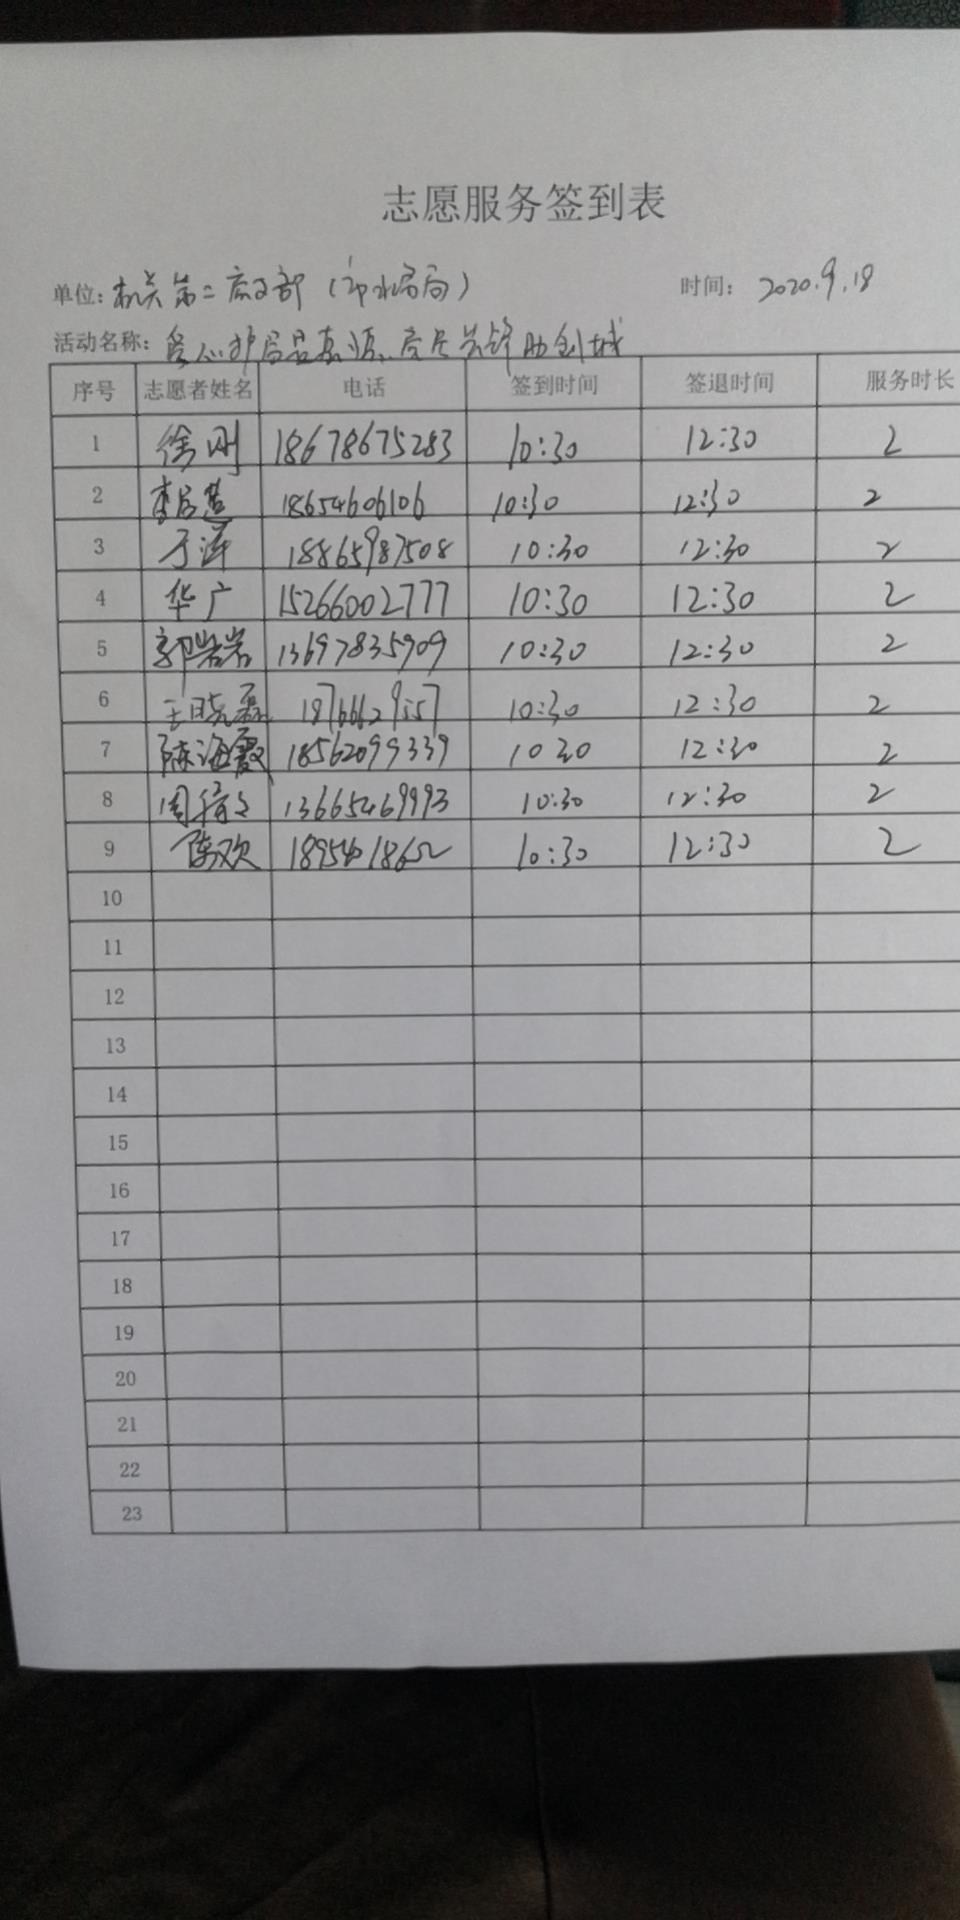 志愿服务签到表
单位：机关第二党支部（市水务局） 时间：2020.9.18
活动名称： 党员先锋助创城
序号 志愿者姓名 电话 签到时间 签退时间 服务时长
1 徐刚 18678675283 10:30 12:30 2
2 18654606106 10:30 12:30 2
3 于洋 18865987508 10:30 12:30 2
4 华广 15266002777 10:30 12:30 2
5 郭岩岩 13697835909 10:30 12:30 2
6 王晓磊 18766629557 10:30 12:30 2
7 陈海霞 18562099339 10:30 12:30 2
8 13665469993 10:30 12:30 2
9 陈欢 10:30 12:30 2
10
11
12
13
14
15
16
17
18
19
20
21
22
23